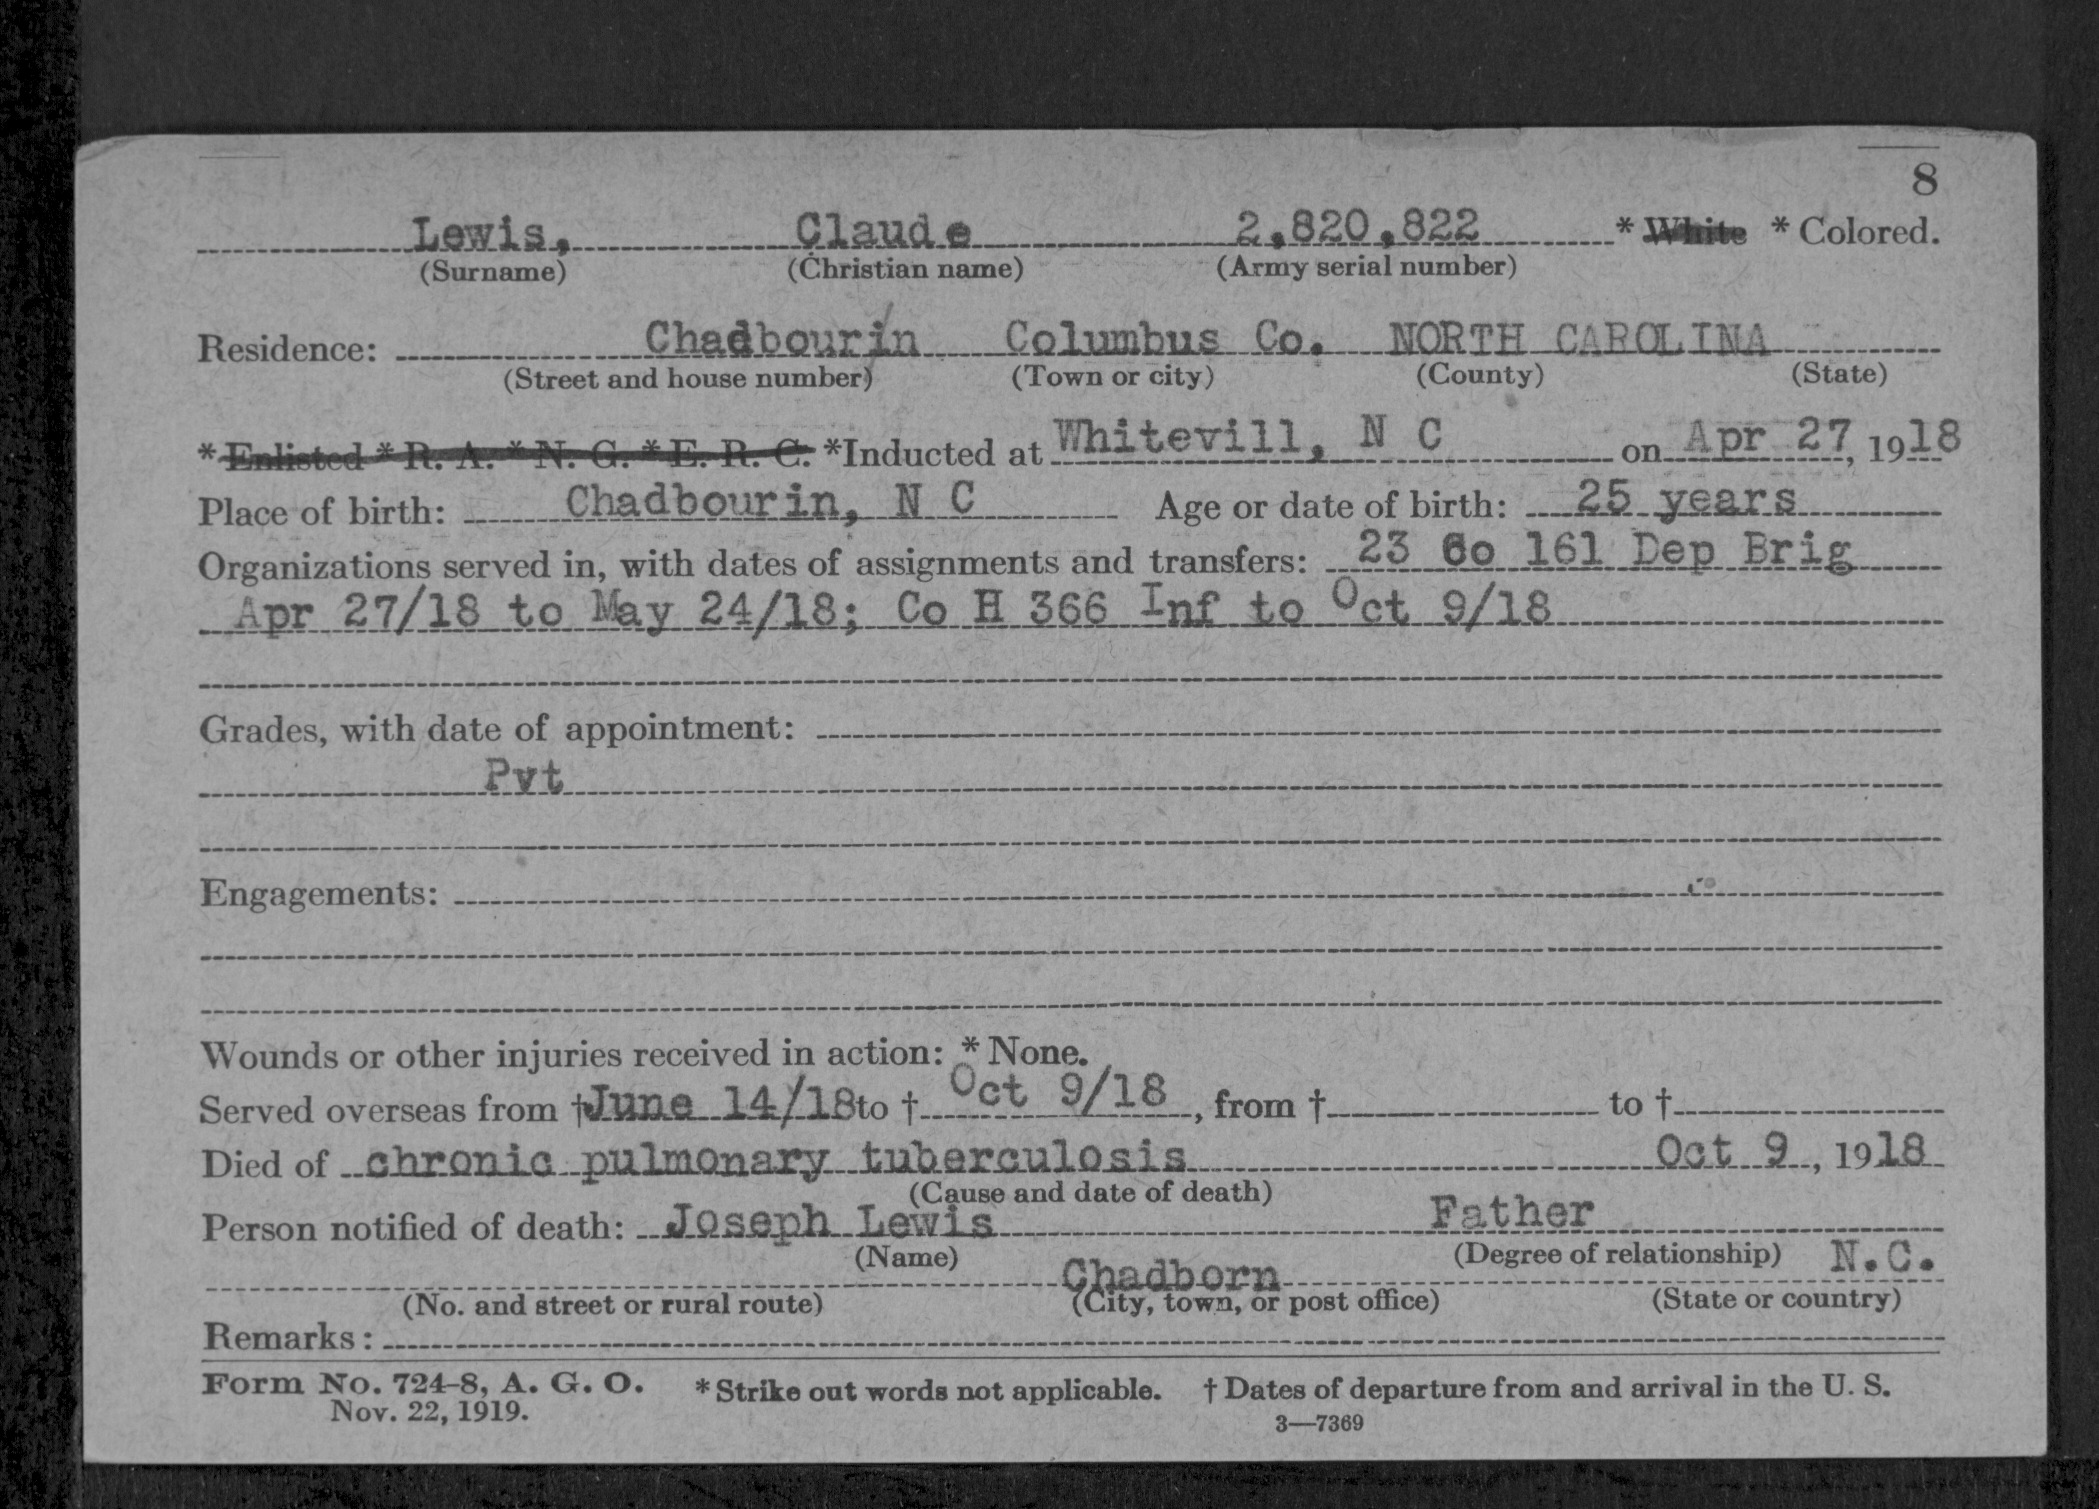 8
Lewis, Claude 2,820,822 * White * Colored.
(Surname) (Christian name) (Army serial number)
Residence: Chadbourin Columbus Co. NORTH CAROLINA
(Street and house number) (Town or city) (County) (State)
* Enlisted * R. A. * N. G. * E. R. C. *Inducted at Whitevill, N C on Apr 27, 1918
Place of birth: Chadbourin, N C Age or date of birth: 25 years
Organizations served in, with dates of assignments and transfers: 23 Co 161 Dep Brig
Apr 27/18 to May 24/18; Co H 366 Inf to Oct 9/18
Grades, with date of appointment:
Pvt
Engagements:
Wounds or other injuries received in action: * None.
Served overseas from †June 14/18 to † Oct 9/18, from † to †
Died of chronic pulmonary tuberculosis Oct 9, 1918
(Cause and date of death)
Person notified of death: Joseph Lewis Father
(Name) (Degree of relationship)
Chadborn N.C.
(No. and street or rural route) (City, town, or post office) (State or country)
Remarks:
Form No. 724-8, A. G. O. * Strike out words not applicable. † Dates of departure from and arrival in the U. S.
Nov. 22, 1919.
3—7369